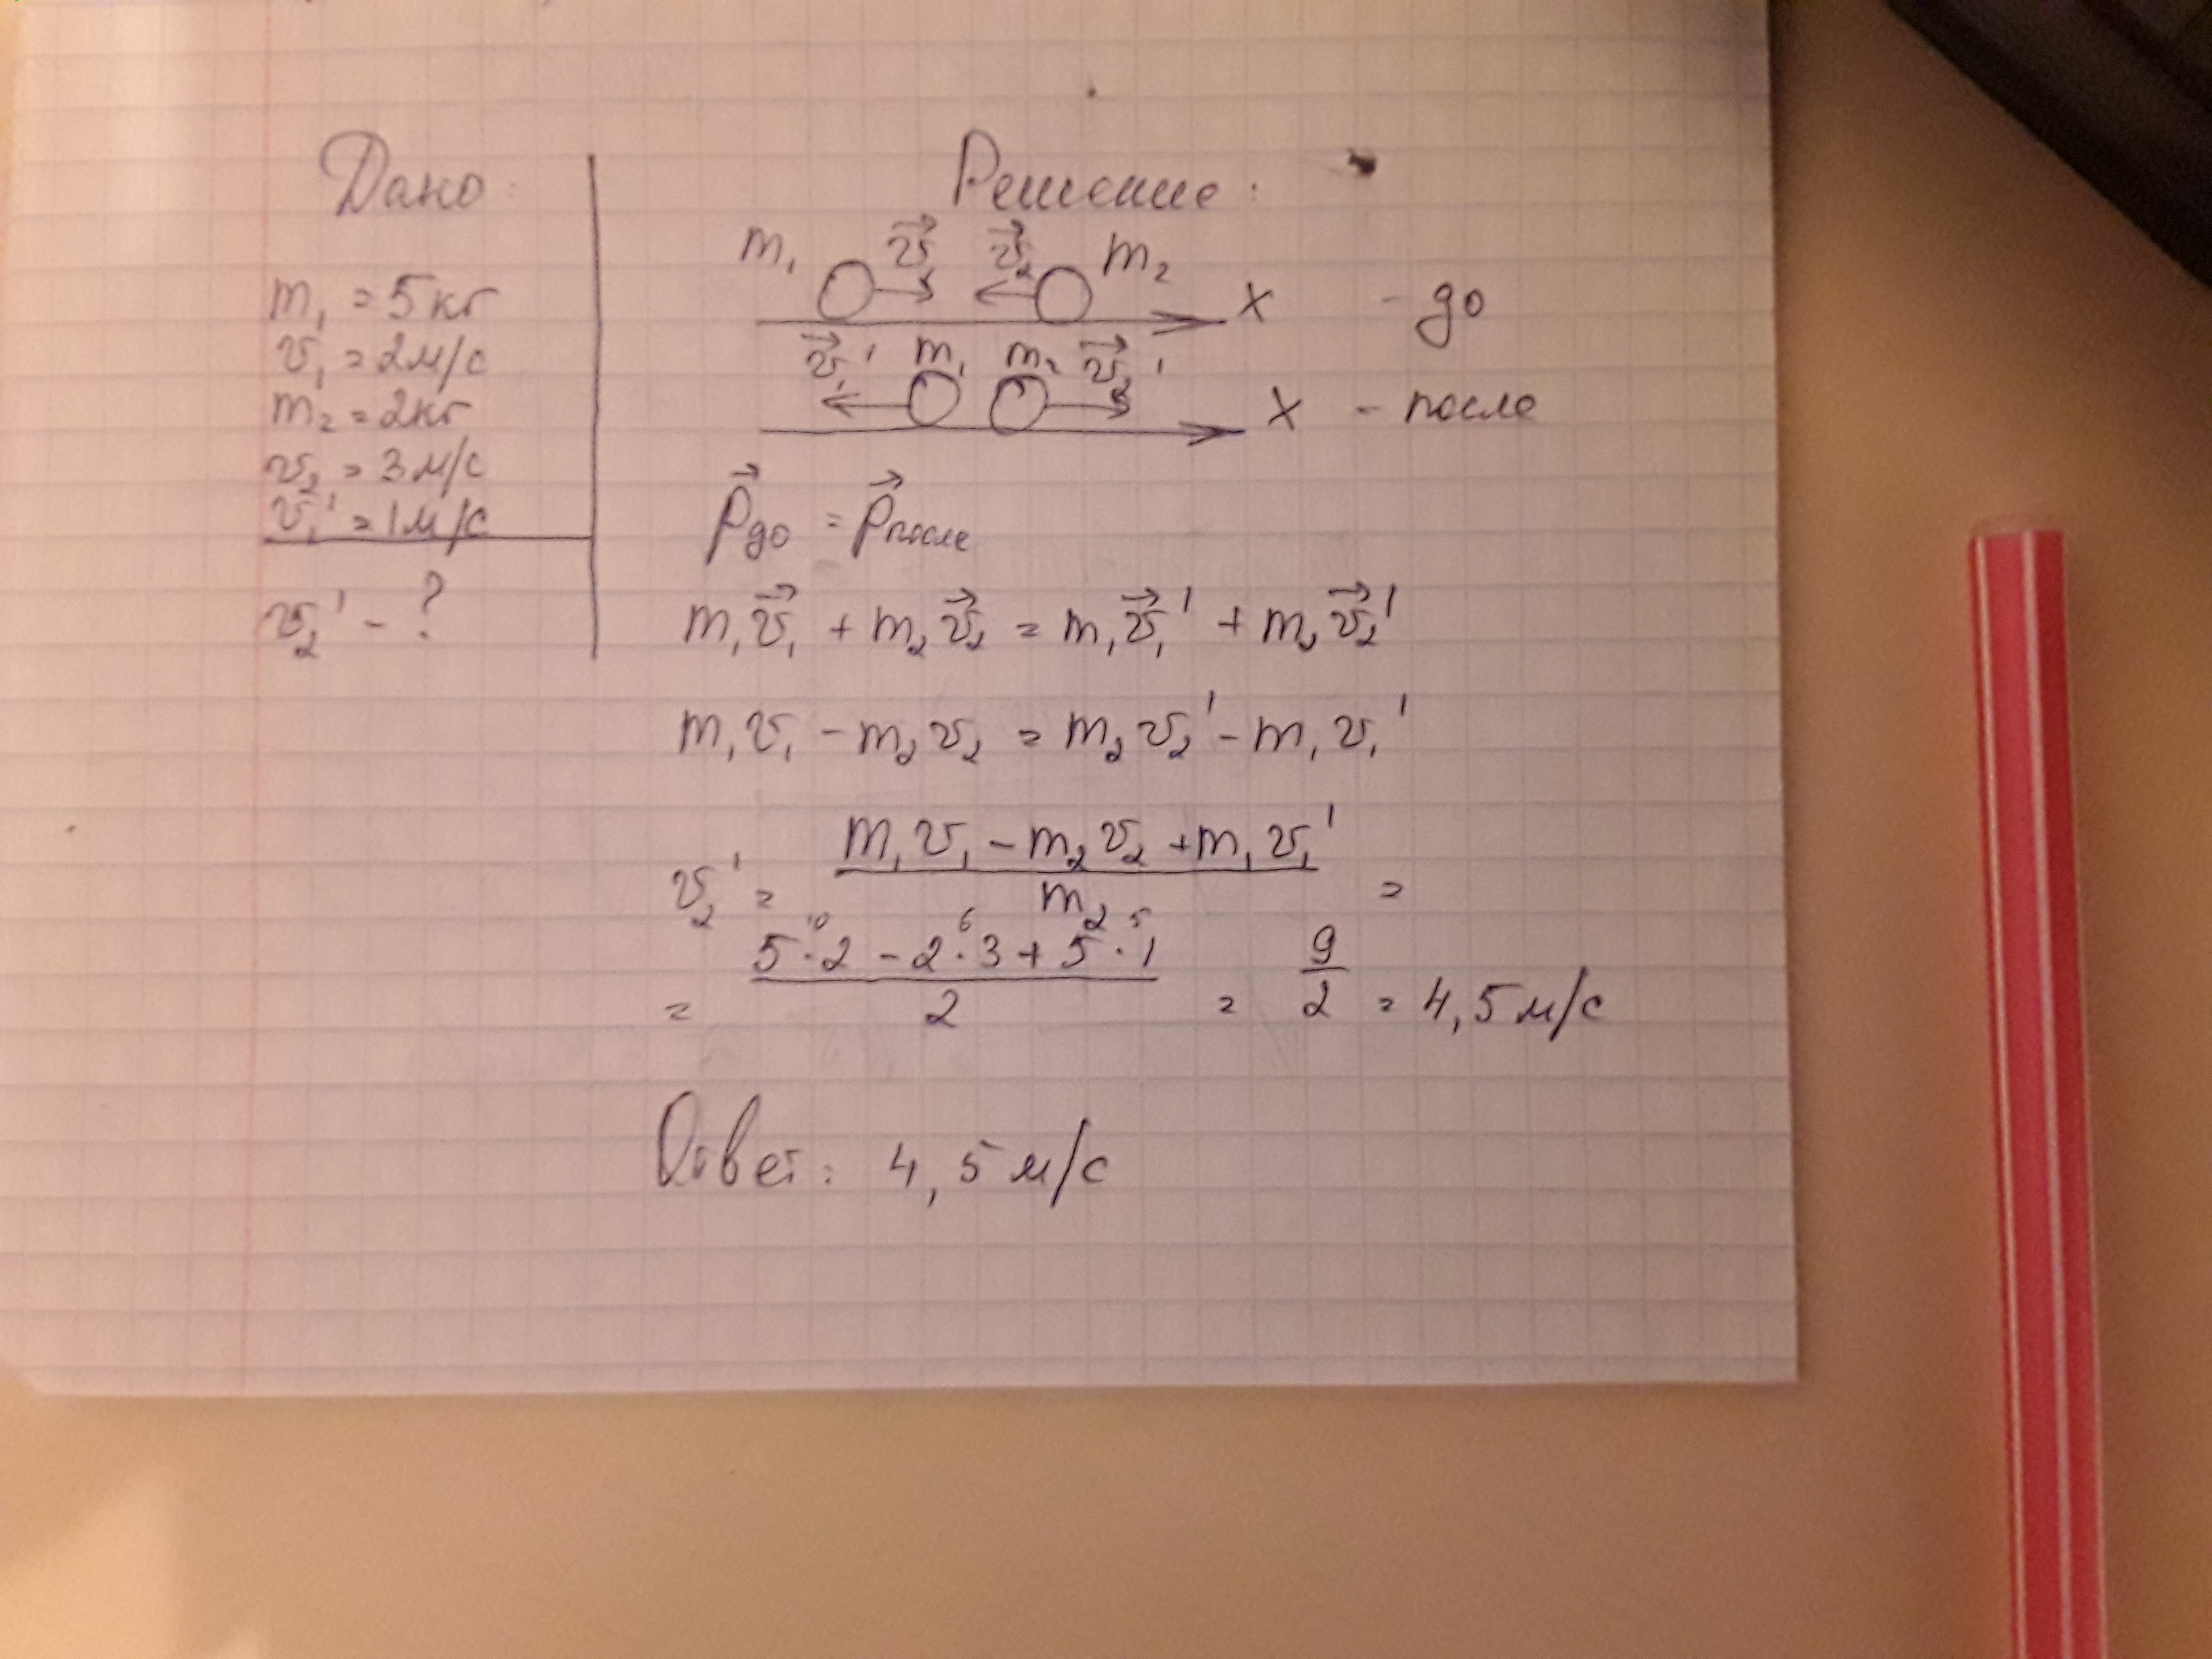 Дано:
m₁ = 5 кг
v₁ = 2 м/с
m₂ = 2 кг
v₂ = 3 м/с
v₁' = 1 м/с
v₂' - ?
Решение:
m₁ v⃗₁ v⃗₂ m₂
x - до
v⃗₁' m₁ m₂ v⃗₂'
x - после
p⃗до = p⃗после
m₁v⃗₁ + m₂v⃗₂ = m₁v⃗₁' + m₂v⃗₂'
m₁v₁ - m₂v₂ = m₂v₂' - m₁v₁'
m₁v₁ - m₂v₂ + m₁v₁'
v₂' = =
m₂
10 6 5
5·2 - 2·3 + 5·1 9
= = = 4,5 м/с
2 2
Ответ: 4,5 м/с